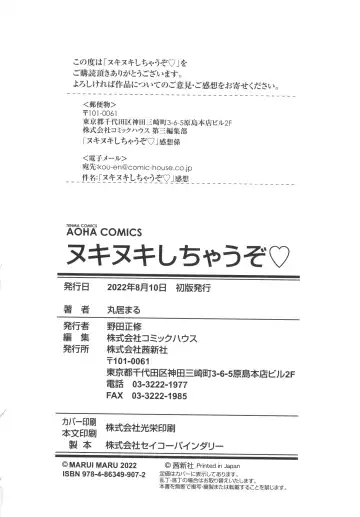 この度は「ヌキヌキしちゃうぞ♡」を
ご購読頂きありがとうございます。
よろしければ作品についてのご意見・ご感想をお寄せください。
＜郵便物＞
〒101-0061
東京都千代田区神田三崎町3-6-5原島本店ビル2F
株式会社コミックハウス 第三編集部
「ヌキヌキしちゃうぞ♡」感想係
＜電子メール＞
宛先:kou-en@comic-house.co.jp
件名:「ヌキヌキしちゃうぞ♡」感想
TENMA COMICS
AOHA COMICS
ヌキヌキしちゃうぞ♡
発行日 2022年8月10日 初版発行
著者 丸居まる
発行者 野田正修
編集 株式会社コミックハウス
発行所 株式会社茜新社
〒101-0061
東京都千代田区神田三崎町3-6-5原島本店ビル2F
電話 03-3222-1977
FAX 03-3222-1985
カバー印刷
本文印刷 株式会社光栄印刷
製本 株式会社セイコーバインダリー
©MARUI MARU 2022
ISBN 978-4-86349-907-2
© 茜新社 Printed in Japan
定価はカバーに表示してあります。
乱丁・落丁の場合はお取り替えいたします。
本書を無断で複写・複製または転載することを禁じます。